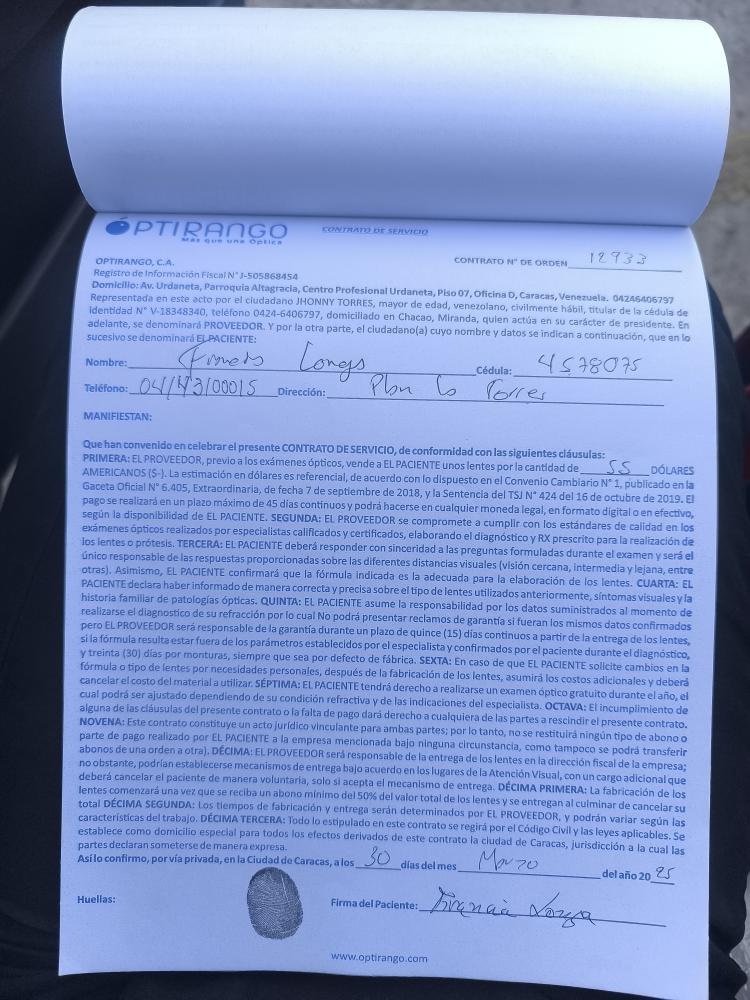 ÓPTIRANGO
Más que una Óptica
CONTRATO DE SERVICIO
CONTRATO N° DE ORDEN 12933
OPTIRANGO, C.A.
Registro de Información Fiscal N° J-505868454
Domicilio: Av. Urdaneta, Parroquia Altagracia, Centro Profesional Urdaneta, Piso 07, Oficina D, Caracas, Venezuela. 04246406797
Representada en este acto por el ciudadano JHONNY TORRES, mayor de edad, venezolano, civilmente hábil, titular de la cédula de
Identidad N° V-18348340, teléfono 0424-6406797, domiciliado en Chacao, Miranda, quien actúa en su carácter de presidente. En
adelante, se denominará PROVEEDOR. Y por la otra parte, el ciudadano(a) cuyo nombre y datos se indican a continuación, que en lo
sucesivo se denominará EL PACIENTE:
Nombre: Cédula: 4578075
Teléfono: 04143100015 Dirección: Plan la Torres
MANIFIESTAN:
Que han convenido en celebrar el presente CONTRATO DE SERVICIO, de conformidad con las siguientes cláusulas:
PRIMERA: EL PROVEEDOR, previo a los exámenes ópticos, vende a EL PACIENTE unos lentes por la cantidad de 55 DÓLARES
AMERICANOS ($-). La estimación en dólares es referencial, de acuerdo con lo dispuesto en el Convenio Cambiario N° 1, publicado en la
Gaceta Oficial N° 6.405, Extraordinaria, de fecha 7 de septiembre de 2018, y la Sentencia del TSJ N° 424 del 16 de octubre de 2019. El
pago se realizará en un plazo máximo de 45 días continuos y podrá hacerse en cualquier moneda legal, en formato digital o en efectivo,
según la disponibilidad de EL PACIENTE. SEGUNDA: EL PROVEEDOR se compromete a cumplir con los estándares de calidad en los
exámenes ópticos realizados por especialistas calificados y certificados, elaborando el diagnóstico y RX prescrito para la realización de
los lentes o prótesis. TERCERA: EL PACIENTE deberá responder con sinceridad a las preguntas formuladas durante el examen y será el
único responsable de las respuestas proporcionadas sobre las diferentes distancias visuales (visión cercana, intermedia y lejana, entre
otras). Asimismo, EL PACIENTE confirmará que la fórmula indicada es la adecuada para la elaboración de los lentes. CUARTA: EL
PACIENTE declara haber informado de manera correcta y precisa sobre el tipo de lentes utilizados anteriormente, síntomas visuales y la
historia familiar de patologías ópticas. QUINTA: EL PACIENTE asume la responsabilidad por los datos suministrados al momento de
realizarse el diagnostico de su refracción por lo cual No podrá presentar reclamos de garantía si fueran los mismos datos confirmados
pero EL PROVEEDOR será responsable de la garantía durante un plazo de quince (15) días continuos a partir de la entrega de los lentes,
si la fórmula resulta estar fuera de los parámetros establecidos por el especialista y confirmados por el paciente durante el diagnóstico,
y treinta (30) días por monturas, siempre que sea por defecto de fábrica. SEXTA: En caso de que EL PACIENTE solicite cambios en la
fórmula o tipo de lentes por necesidades personales, después de la fabricación de los lentes, asumirá los costos adicionales y deberá
cancelar el costo del material a utilizar. SÉPTIMA: EL PACIENTE tendrá derecho a realizarse un examen óptico gratuito durante el año, el
cual podrá ser ajustado dependiendo de su condición refractiva y de las indicaciones del especialista. OCTAVA: El incumplimiento de
alguna de las cláusulas del presente contrato o la falta de pago dará derecho a cualquiera de las partes a rescindir el presente contrato.
NOVENA: Este contrato constituye un acto jurídico vinculante para ambas partes; por lo tanto, no se restituirá ningún tipo de abono o
parte de pago realizado por EL PACIENTE a la empresa mencionada bajo ninguna circunstancia, como tampoco se podrá transferir
abonos de una orden a otra). DÉCIMA: EL PROVEEDOR será responsable de la entrega de los lentes en la dirección fiscal de la empresa;
no obstante, podrían establecerse mecanismos de entrega bajo acuerdo en los lugares de la Atención Visual, con un cargo adicional que
deberá cancelar el paciente de manera voluntaria, solo si acepta el mecanismo de entrega. DÉCIMA PRIMERA: La fabricación de los
lentes comenzará una vez que se reciba un abono mínimo del 50% del valor total de los lentes y se entregan al culminar de cancelar su
total DÉCIMA SEGUNDA: Los tiempos de fabricación y entrega serán determinados por EL PROVEEDOR, y podrán variar según las
características del trabajo. DÉCIMA TERCERA: Todo lo estipulado en este contrato se regirá por el Código Civil y las leyes aplicables. Se
establece como domicilio especial para todos los efectos derivados de este contrato la ciudad de Caracas, jurisdicción a la cual las
partes declaran someterse de manera expresa.
Así lo confirmo, por vía privada, en la Ciudad de Caracas, a los 30 días del mes Marzo del año 20 25
Huellas:
Firma del Paciente:
www.optirango.com